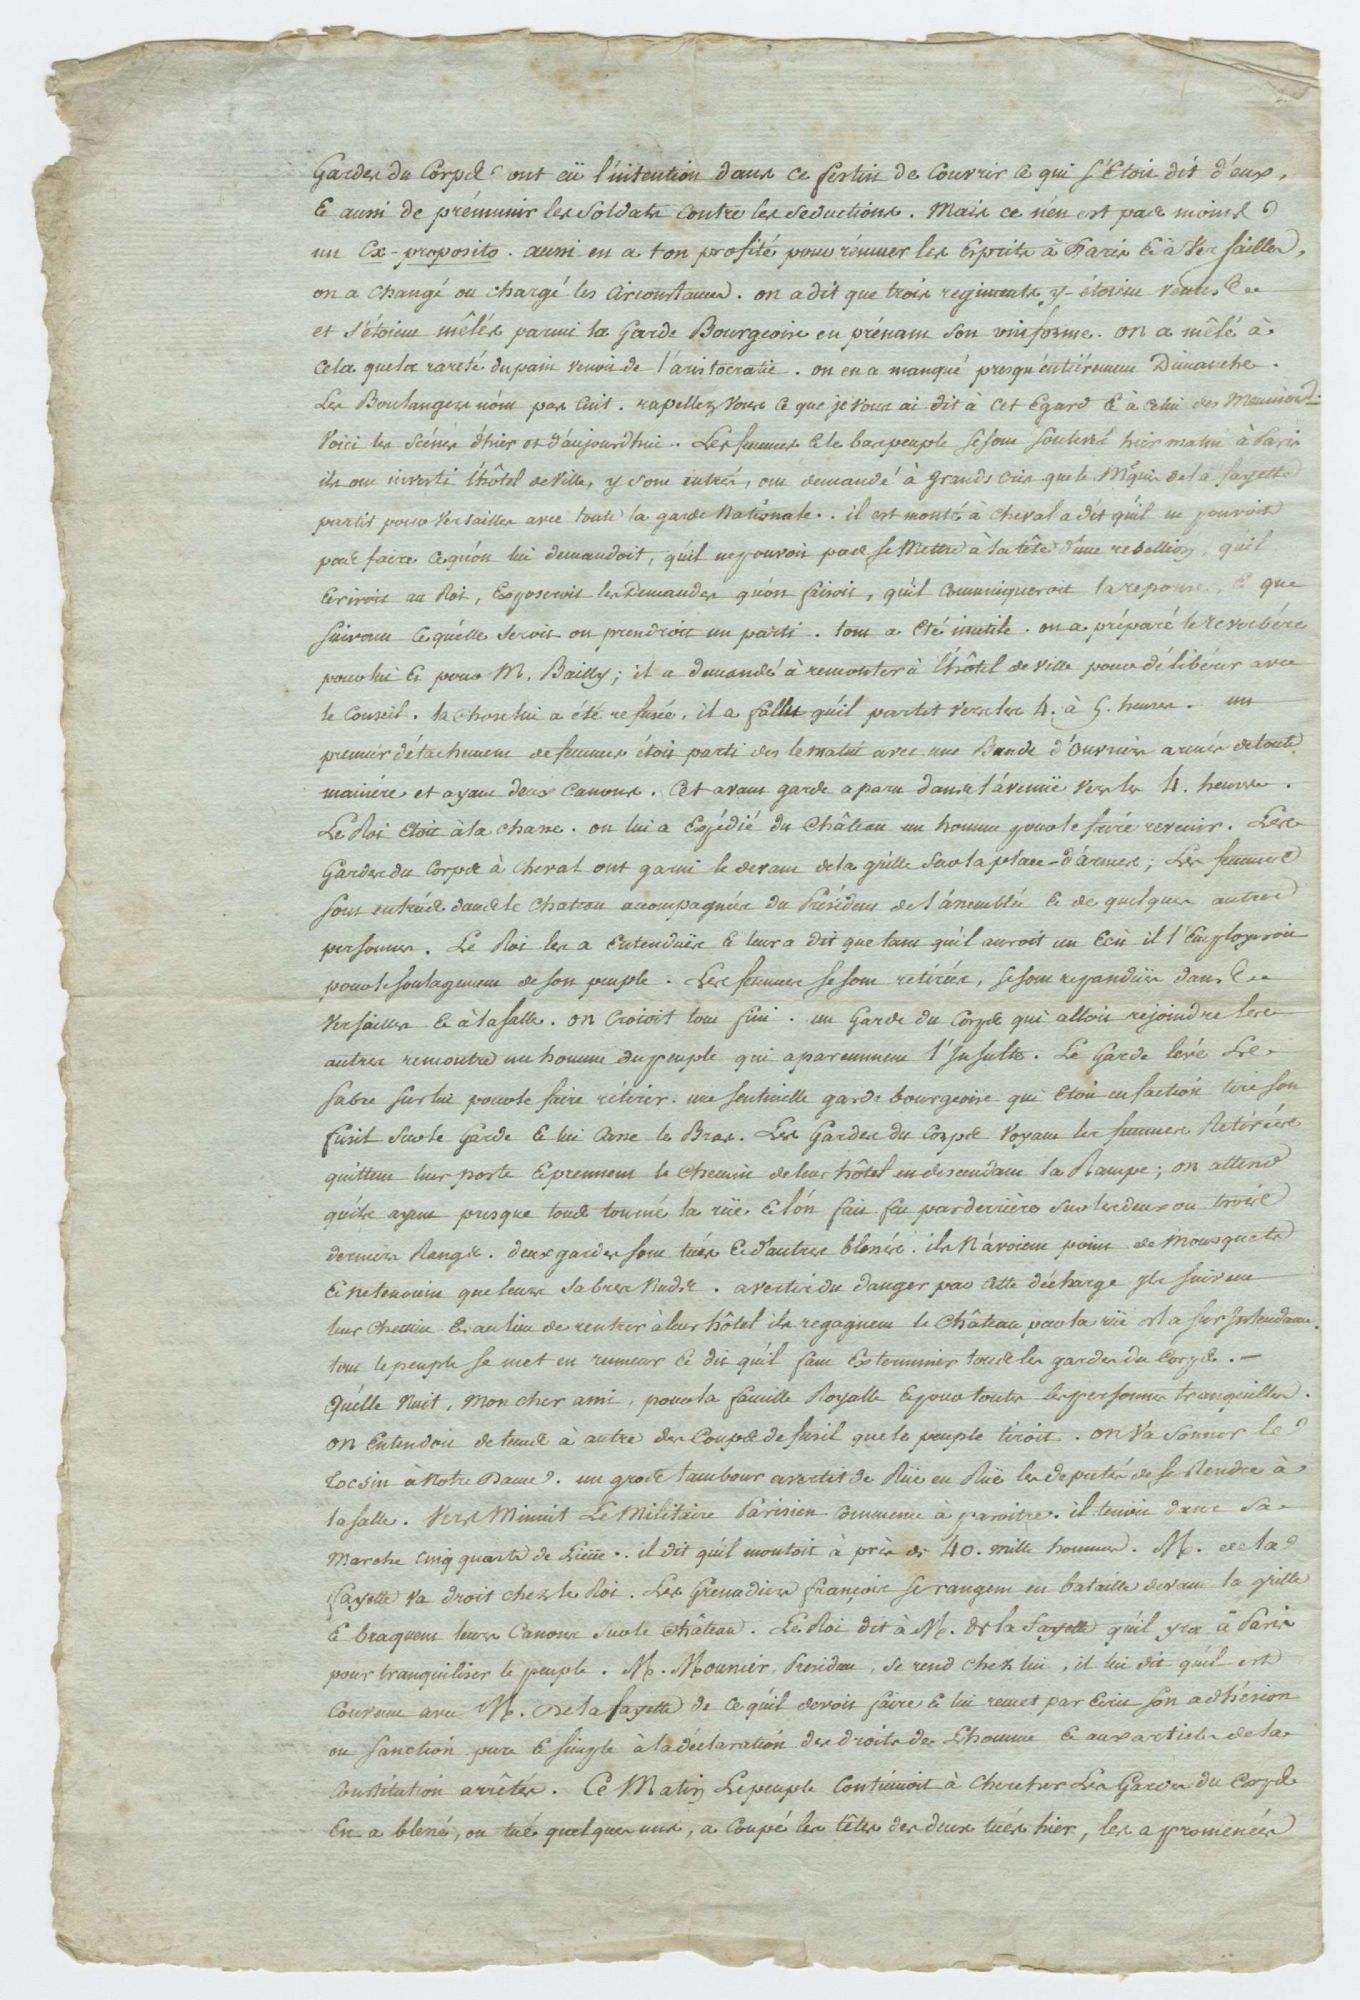 Gardes du Corps ont eü l'intention dans ce festin de Couvrir ce qui s'étoit dit d'eux,
& aussi de prémunir les soldats contre les seductions. Mais ce n'en est pas moins
un Ex-proposito. aussi en a t'on profité pour rémuer les Esprits à Paris & à Versailles,
on a changé ou chargé les Circonstances. on a dit que trois regiments y étoient venus
et s'étoient mêlés parmi la Garde Bourgeoise en prénant son uniforme. on a mêlé à
cela que la rareté du pain venoit de l'aristocratie. on en a manqué presqu'éntiérement Dimanche.
Les Boulangers n'ont pas Cuit. rapellez vous ce que je vous ai dit à cet Egard & à celui des Meuniers.
Voici les scénes d'hier et d'aujourd'hui. Les femmes & le bas peuple se sont soulevé hier matin à Paris
ils ont investi l'hôtel de Ville, y sont entrés, ont demandé à grands cris que le Mquis de la fayette
partit pour Versailles avec toute la garde Nationale. il est monté à cheval a dit qu'il ne pouvoit
pas faire ce qu'on lui demandoit, qu'il ne pouvoit pas se Mettre à la tête d'une rebellion, qu'il
écriroit au Roi, Exposeroit les Demandes qu'on faisoit, qu'il Communiqueroit la reponse, & que
suivant ce qu'elle seroit on prendroit un parti. tout a été inutile. on a préparé le reverbére
pour lui & pour M. Bailly; il a demandé à remonter à l'hôtel de ville pour délibérer avec
le Conseil. la chose lui a été refusée, il a fallu qu'il partit vers les 4. à 5. heures. un
premier détachement de femmes étoit parti des le matin avec une Bande d'ouvriers armés de toute
maniére et ayant deux Canons. Cet avant garde a paru dans l'avenuë vers les 4. heures.
Le Roi étoit à la chasse. on lui a Expédié du Château un homme pour le faire revenir. Les
Gardes du Corps à cheval ont garni le devant de la grille sur la place-d'armes; Les femmes
sont entrées dans le Chateau accompagnées du Président de l'assemblée & de quelques autres
personnes. Le Roi les a Entenduës & leur a dit que tant qu'il auroit un Ecu il l'Employeroit
pour le soulagement de son peuple. Les femmes se sont retirées, se sont repanduës dans
Versailles & à la salle. on Croioit tout fini. un Garde du Corps qui alloit rejoindre les
autres remontre un homme du peuple qui aparemment l'insulte. Le Garde léve le
sabre sur lui pour le faire rétirer. une sentinelle garde bourgeoise qui étoit en faction tire son
fusil sur le Garde & lui Casse le Bras. Les Gardes du Corps voyant les femmes Retirées
quittent leur poste & prennent le chemin de leur hôtel en descendant la Rampe; on attend
qu'ils ayent presque tous tourné la ruë & l'on fait feu par derrière sur les deux ou trois
derniers Rangs. deux gardes sont tués & d'autres blessés. ils n'avoient point de Mousquets
& ne tenoient que leurs sabres Nuds. avertis du danger par cette décharge ils suivent
leur Chemin & au lieu de rentrer à leur hôtel ils regagnent le Château par la ruë de la sur Intendance.
tout le peuple se met en rumeur & dit qu'il faut Exterminer tous les gardes du Corps. —
Quélle Nuit, mon cher ami, pour la famille Royalle & pour toutes les personnes tranquilles.
on Entendoit de tems à autre des Coups de fusil que le peuple tiroit. on va sonner le
Tocsin à Notre Dame. un gros tambour avertit de Ruë en Ruë les députés de se Rendre à
la salle. Vers Minuit Le Militaire Parisien commence à paroitre. il tenoit dans sa
Marche cinq quarts de Lieüe. il dit qu'il montoit à près de 40. mille hommes. M. de la
fayette va droit chez le Roi. Les Grenadiers françois se rangent en bataille devant la grille
& braquent leurs Canons sur le Château. Le Roi dit à M. de la fayette qu'il yra à Paris
pour tranquiliser le peuple. M. Mounier, President, se rend chez lui, il lui dit qu'il est
Convenu avec M. De la fayette de ce qu'il devoit faire & lui remet par Ecrit son adhésion
ou sanction pure & simple à la déclaration des droits de L'homme & aux articles de la
Constitution arrêtés. Ce Matin Le peuple Continuoit à chercher Les Gardes du Corps
En a blessé, ou tué quelques uns, a Coupé les têtes des deux tués hier, les a promenées